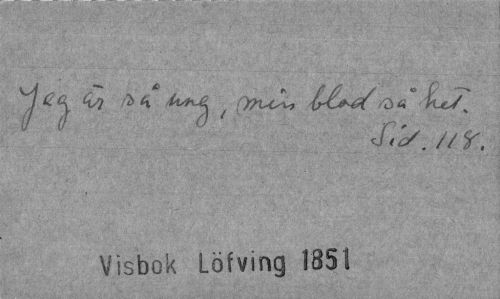 Jag är så ung, min blod så het.
Sid. 118.
Visbok Löfving 1851